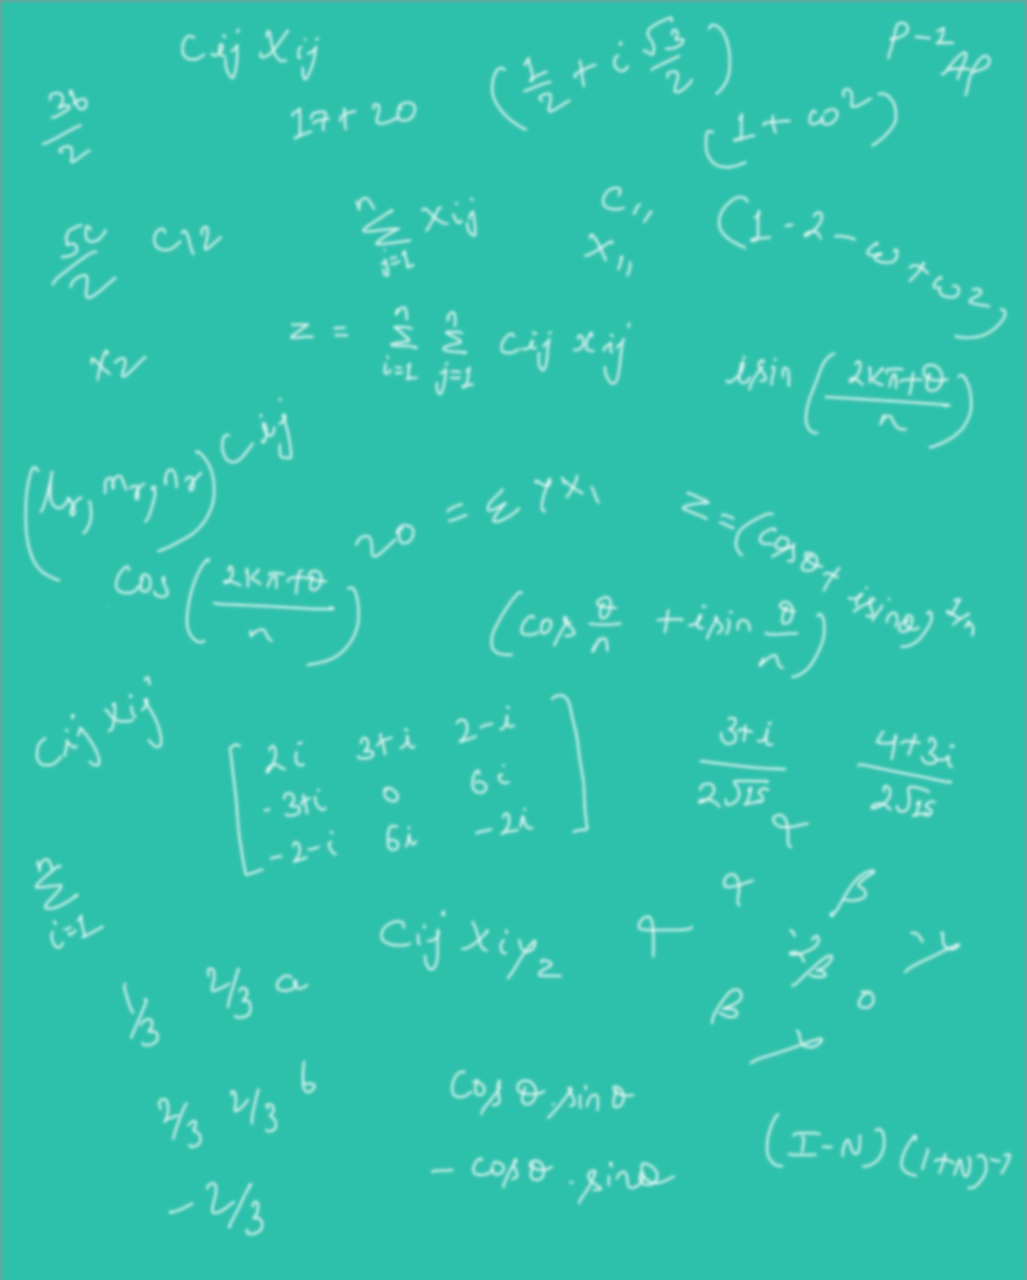 Cij Xij
(1/2 + i √3/2)
P-1 AP
3b/2
17+20
(1+ω²)
5c/2
C12
n Σ j=1 Xij
C11
X11
(1-2-ω+ω2)
X2
z = n Σ i=1 n Σ j=1 Cij xij
isin (2Kπ+θ / n)
(lr, mr, nr) Cij
20 = Σ Y X1
Z=(cosθ+isinθ)1/n
Cos (2Kπ+θ / n)
(cos θ/n + isin θ/n)
Cij Xij
[2i 3+i 2-i
-3+i 0 6i
-2-i 6i -2i]
3+i / 2√15
4+3i / 2√15
n Σ i=1
Cij Xij
β
β
β 0
1/3 2/3 a
2/3 2/3 b
-2/3
Cosθ.sinθ
-cosθ.sinθ
(I-N) (I+N)-1